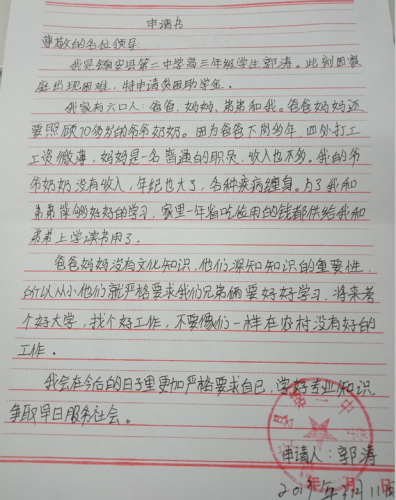 申请书
尊敬的各位领导:
我是镇安县第二中学高三年级学生郭涛。此刻因家
庭出现困难,特申请贫困助学金。
我家有六口人:爸爸、妈妈、弟弟和我。爸爸妈妈还
要照顾70多岁的爷爷奶奶。因为爸爸下岗多年,四处打工
工资微薄,妈妈是一名普通的职员,收入也不多。我的爷
爷奶奶没有收入,年纪也大了,各种疾病缠身。为了我和
弟弟能够好好的学习,家里一年省吃俭用的钱都供给我和
弟弟上学读书用了。
爸爸妈妈没有文化知识,他们深知知识的重要性,
所以从小他们就严格要求我们兄弟俩要好好学习,将来考
个好大学,找个好工作,不要像他们一样在农村没有好的
工作。
我会在今后的日子里更加严格要求自己,学好专业知识
争取早日服务社会。
申请人:郭涛
县第二中